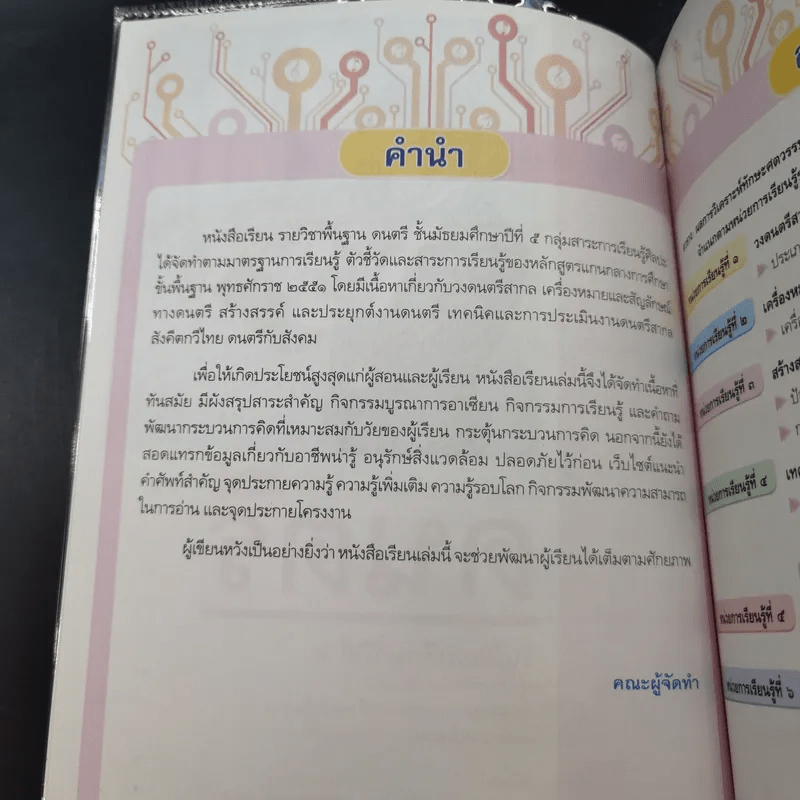 คำนำ
หนังสือเรียน รายวิชาพื้นฐาน ดนตรี ชั้นมัธยมศึกษาปีที่ ๕ กลุ่มสาระการเรียนรู้ศิลปะ
ได้จัดทำตามมาตรฐานการเรียนรู้ ตัวชี้วัดและสาระการเรียนรู้ของหลักสูตรแกนกลางการศึกษา
ขั้นพื้นฐาน พุทธศักราช ๒๕๕๑ โดยมีเนื้อหาเกี่ยวกับวงดนตรีสากล เครื่องหมายและสัญลักษณ์
ทางดนตรี สร้างสรรค์ และประยุกต์งานดนตรี เทคนิคและการประเมินงานดนตรีสากล
สังคีตกวีไทย ดนตรีกับสังคม
เพื่อให้เกิดประโยชน์สูงสุดแก่ผู้สอนและผู้เรียน หนังสือเรียนเล่มนี้จึงได้จัดทำเนื้อหาที่
ทันสมัย มีผังสรุปสาระสำคัญ กิจกรรมบูรณาการอาเซียน กิจกรรมการเรียนรู้ และคำถาม
พัฒนากระบวนการคิดที่เหมาะสมกับวัยของผู้เรียน กระตุ้นกระบวนการคิด นอกจากนี้ยังได้
สอดแทรกข้อมูลเกี่ยวกับอาชีพน่ารู้ อนุรักษ์สิ่งแวดล้อม ปลอดภัยไว้ก่อน เว็บไซต์แนะนำ
คำศัพท์สำคัญ จุดประกายความรู้ ความรู้เพิ่มเติม ความรู้รอบโลก กิจกรรมพัฒนาความสามารถ
ในการอ่าน และจุดประกายโครงงาน
ผู้เขียนหวังเป็นอย่างยิ่งว่า หนังสือเรียนเล่มนี้ จะช่วยพัฒนาผู้เรียนได้เต็มตามศักยภาพ
คณะผู้จัดทำ
ผลการวิเคราะห์ทักษะศตวรรษ
จำแนกตามหน่วยการเรียนรู้
หน่วยการเรียนรู้ที่ ๑
วงดนตรีสา
ประเภ
หน่วยการเรียนรู้ที่ ๒
เครื่องหม
เครื่
หน่วยการเรียนรู้ที่ ๓
สร้างส
หน่วยการเรียนรู้ที่ ๔
เทค
หน่วยการเรียนรู้ที่ ๕
หน่วยการเรียนรู้ที่ ๖